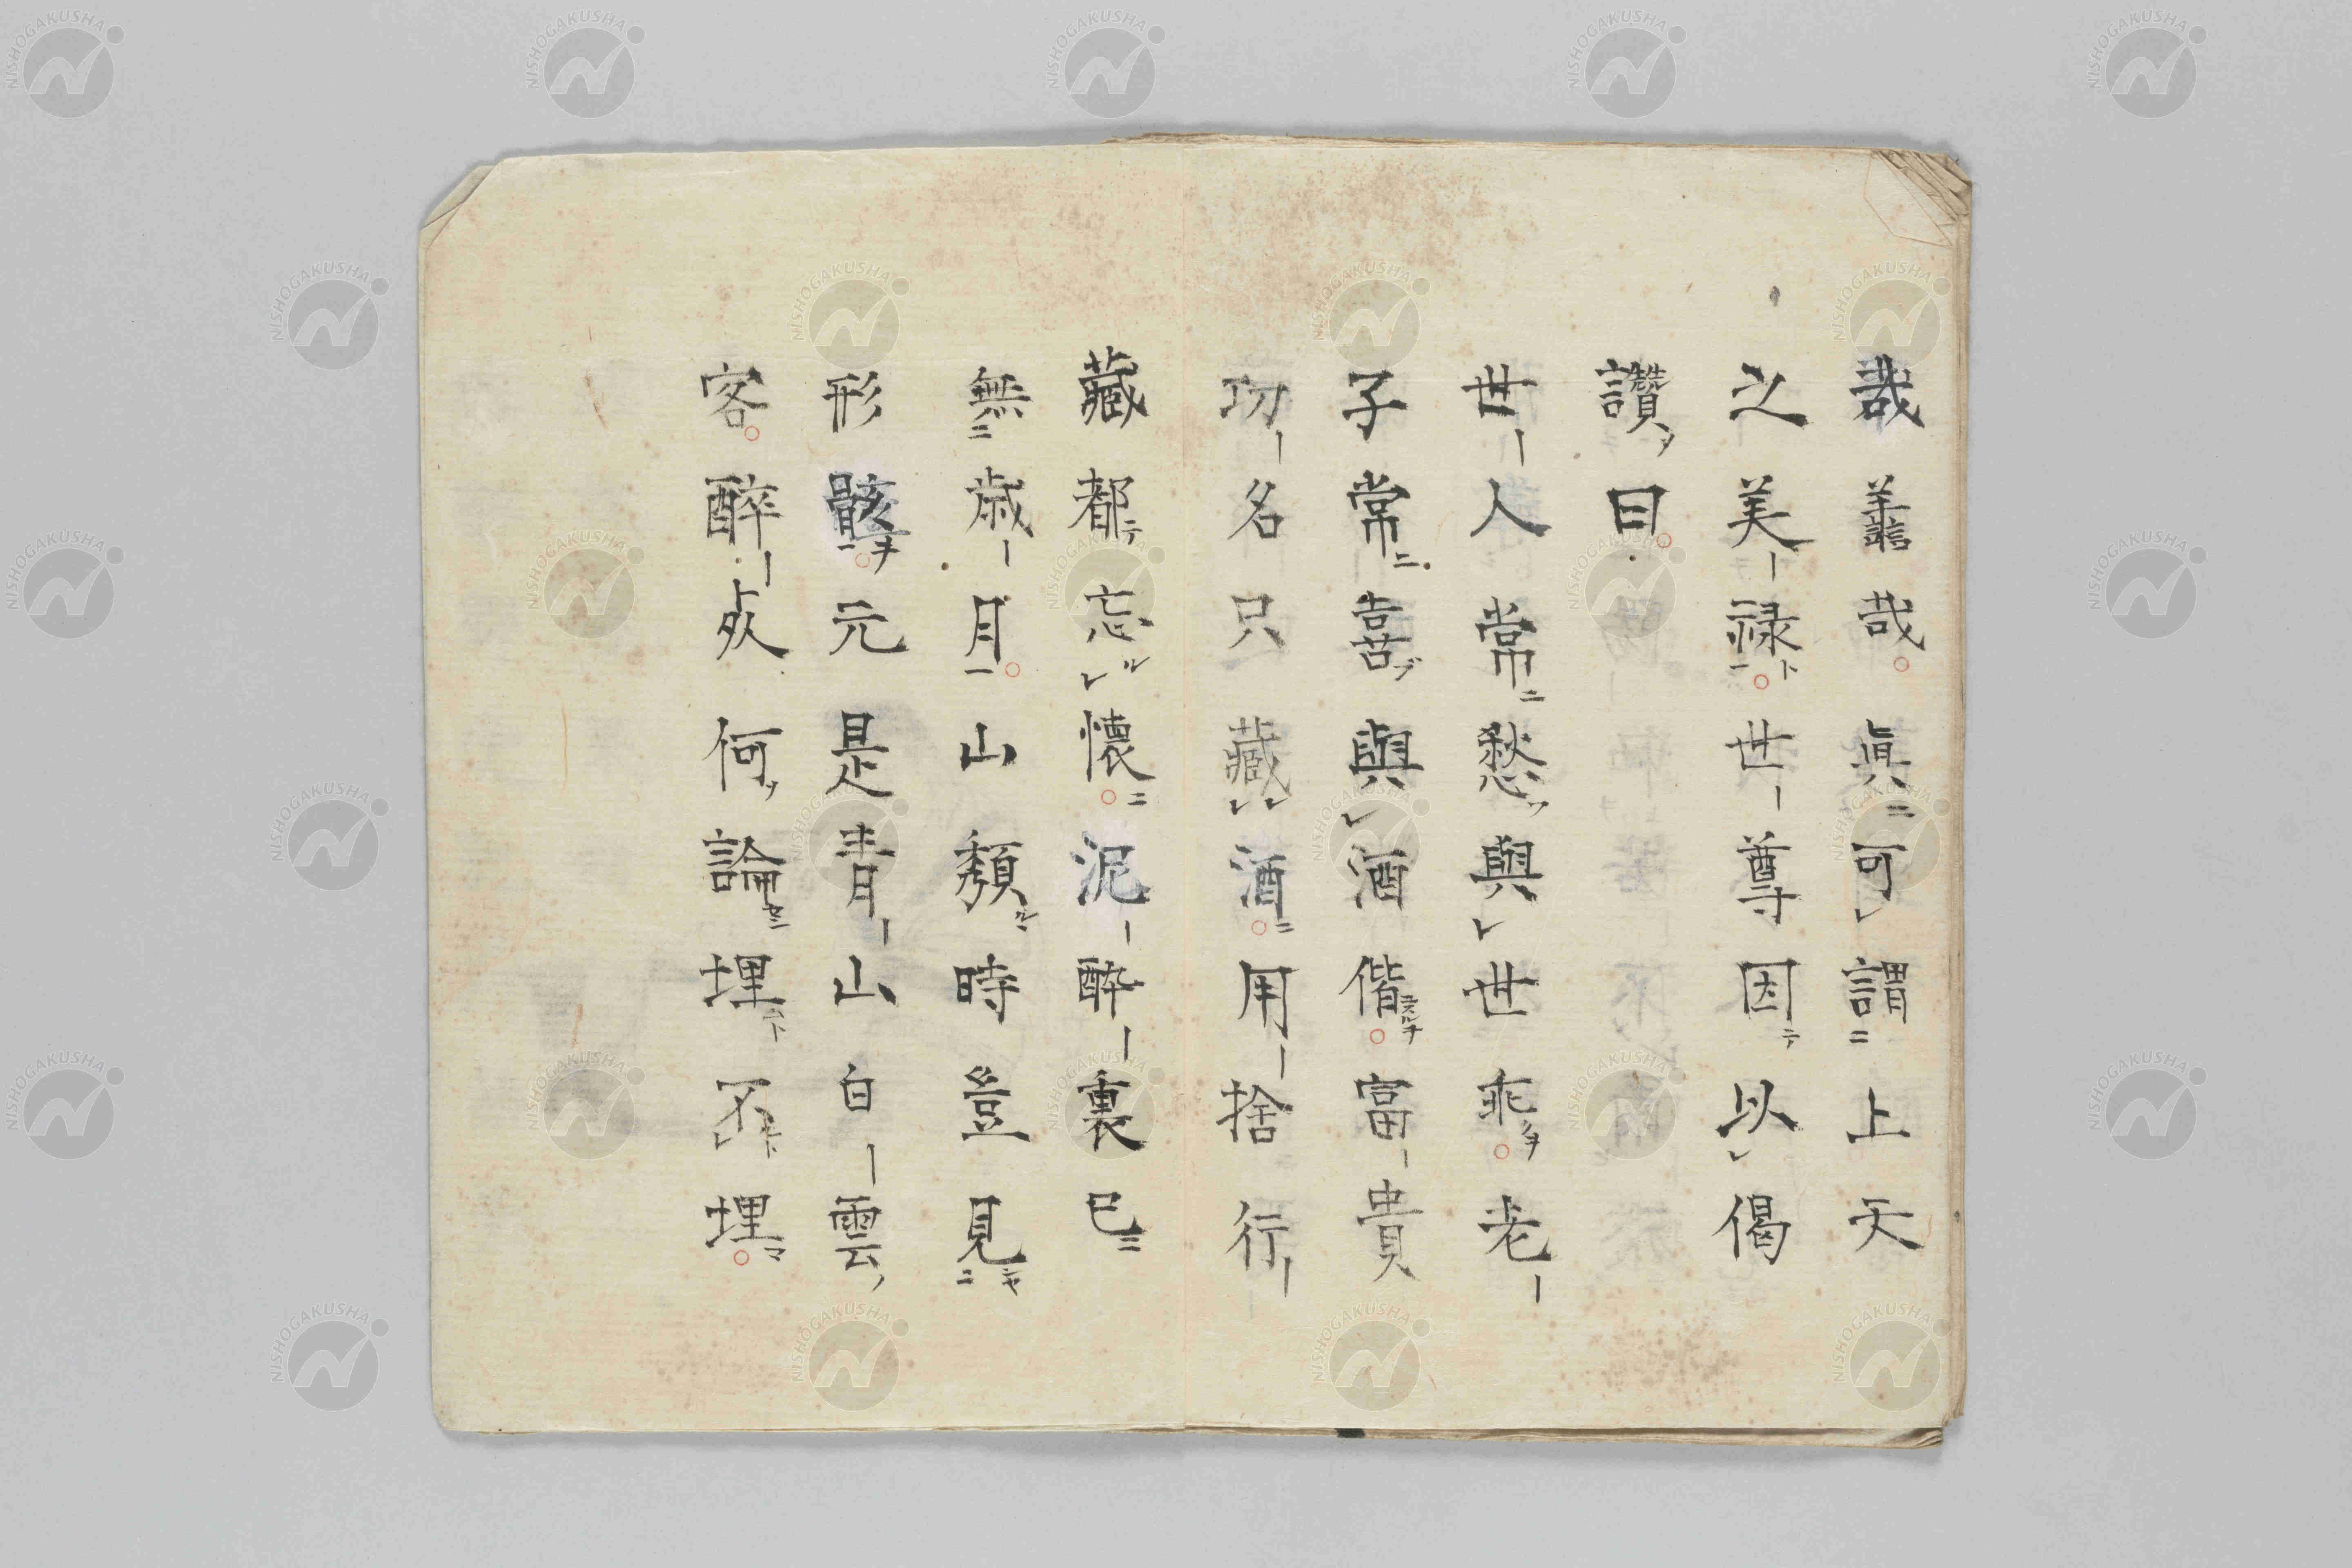 哉譱哉。眞ニ可レ謂二上天
之美-禄一ト。世-尊因テ以レ偈
讚メ曰。
世-人常ニ愁フ與レ世乖クヲ。老-
子常ニ喜ブ與レ酒偕ニスルヲ。富-貴
功-名只藏レレ酒ニ。用-捨行-
藏都テ忘ルレ懷ニ。泥-醉-裏已ニ
無二歳-月一。山頽ルヽ時豈見二ンヤ
形骸一ヲ。元是青-山白-雲ノ
客。醉-処何ソ論セン埋ト不レト埋マ。